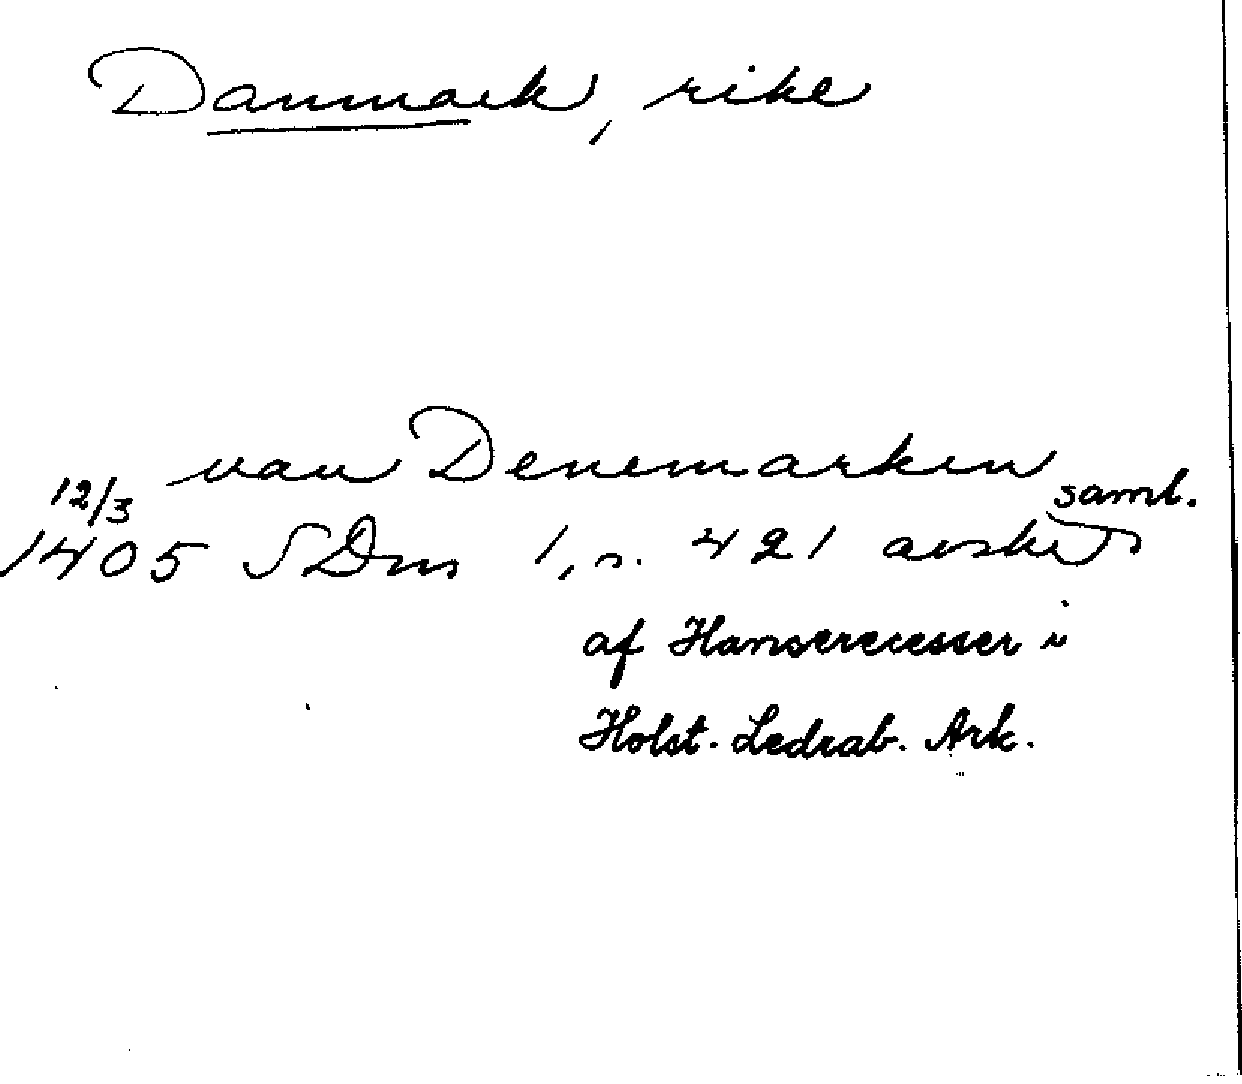 Danmark, rike
van Denemarken
12/3 1405 SDns 1, s. 421 avskr saml.
af Hanserecesser i
Holst. Ledrab. Ark.